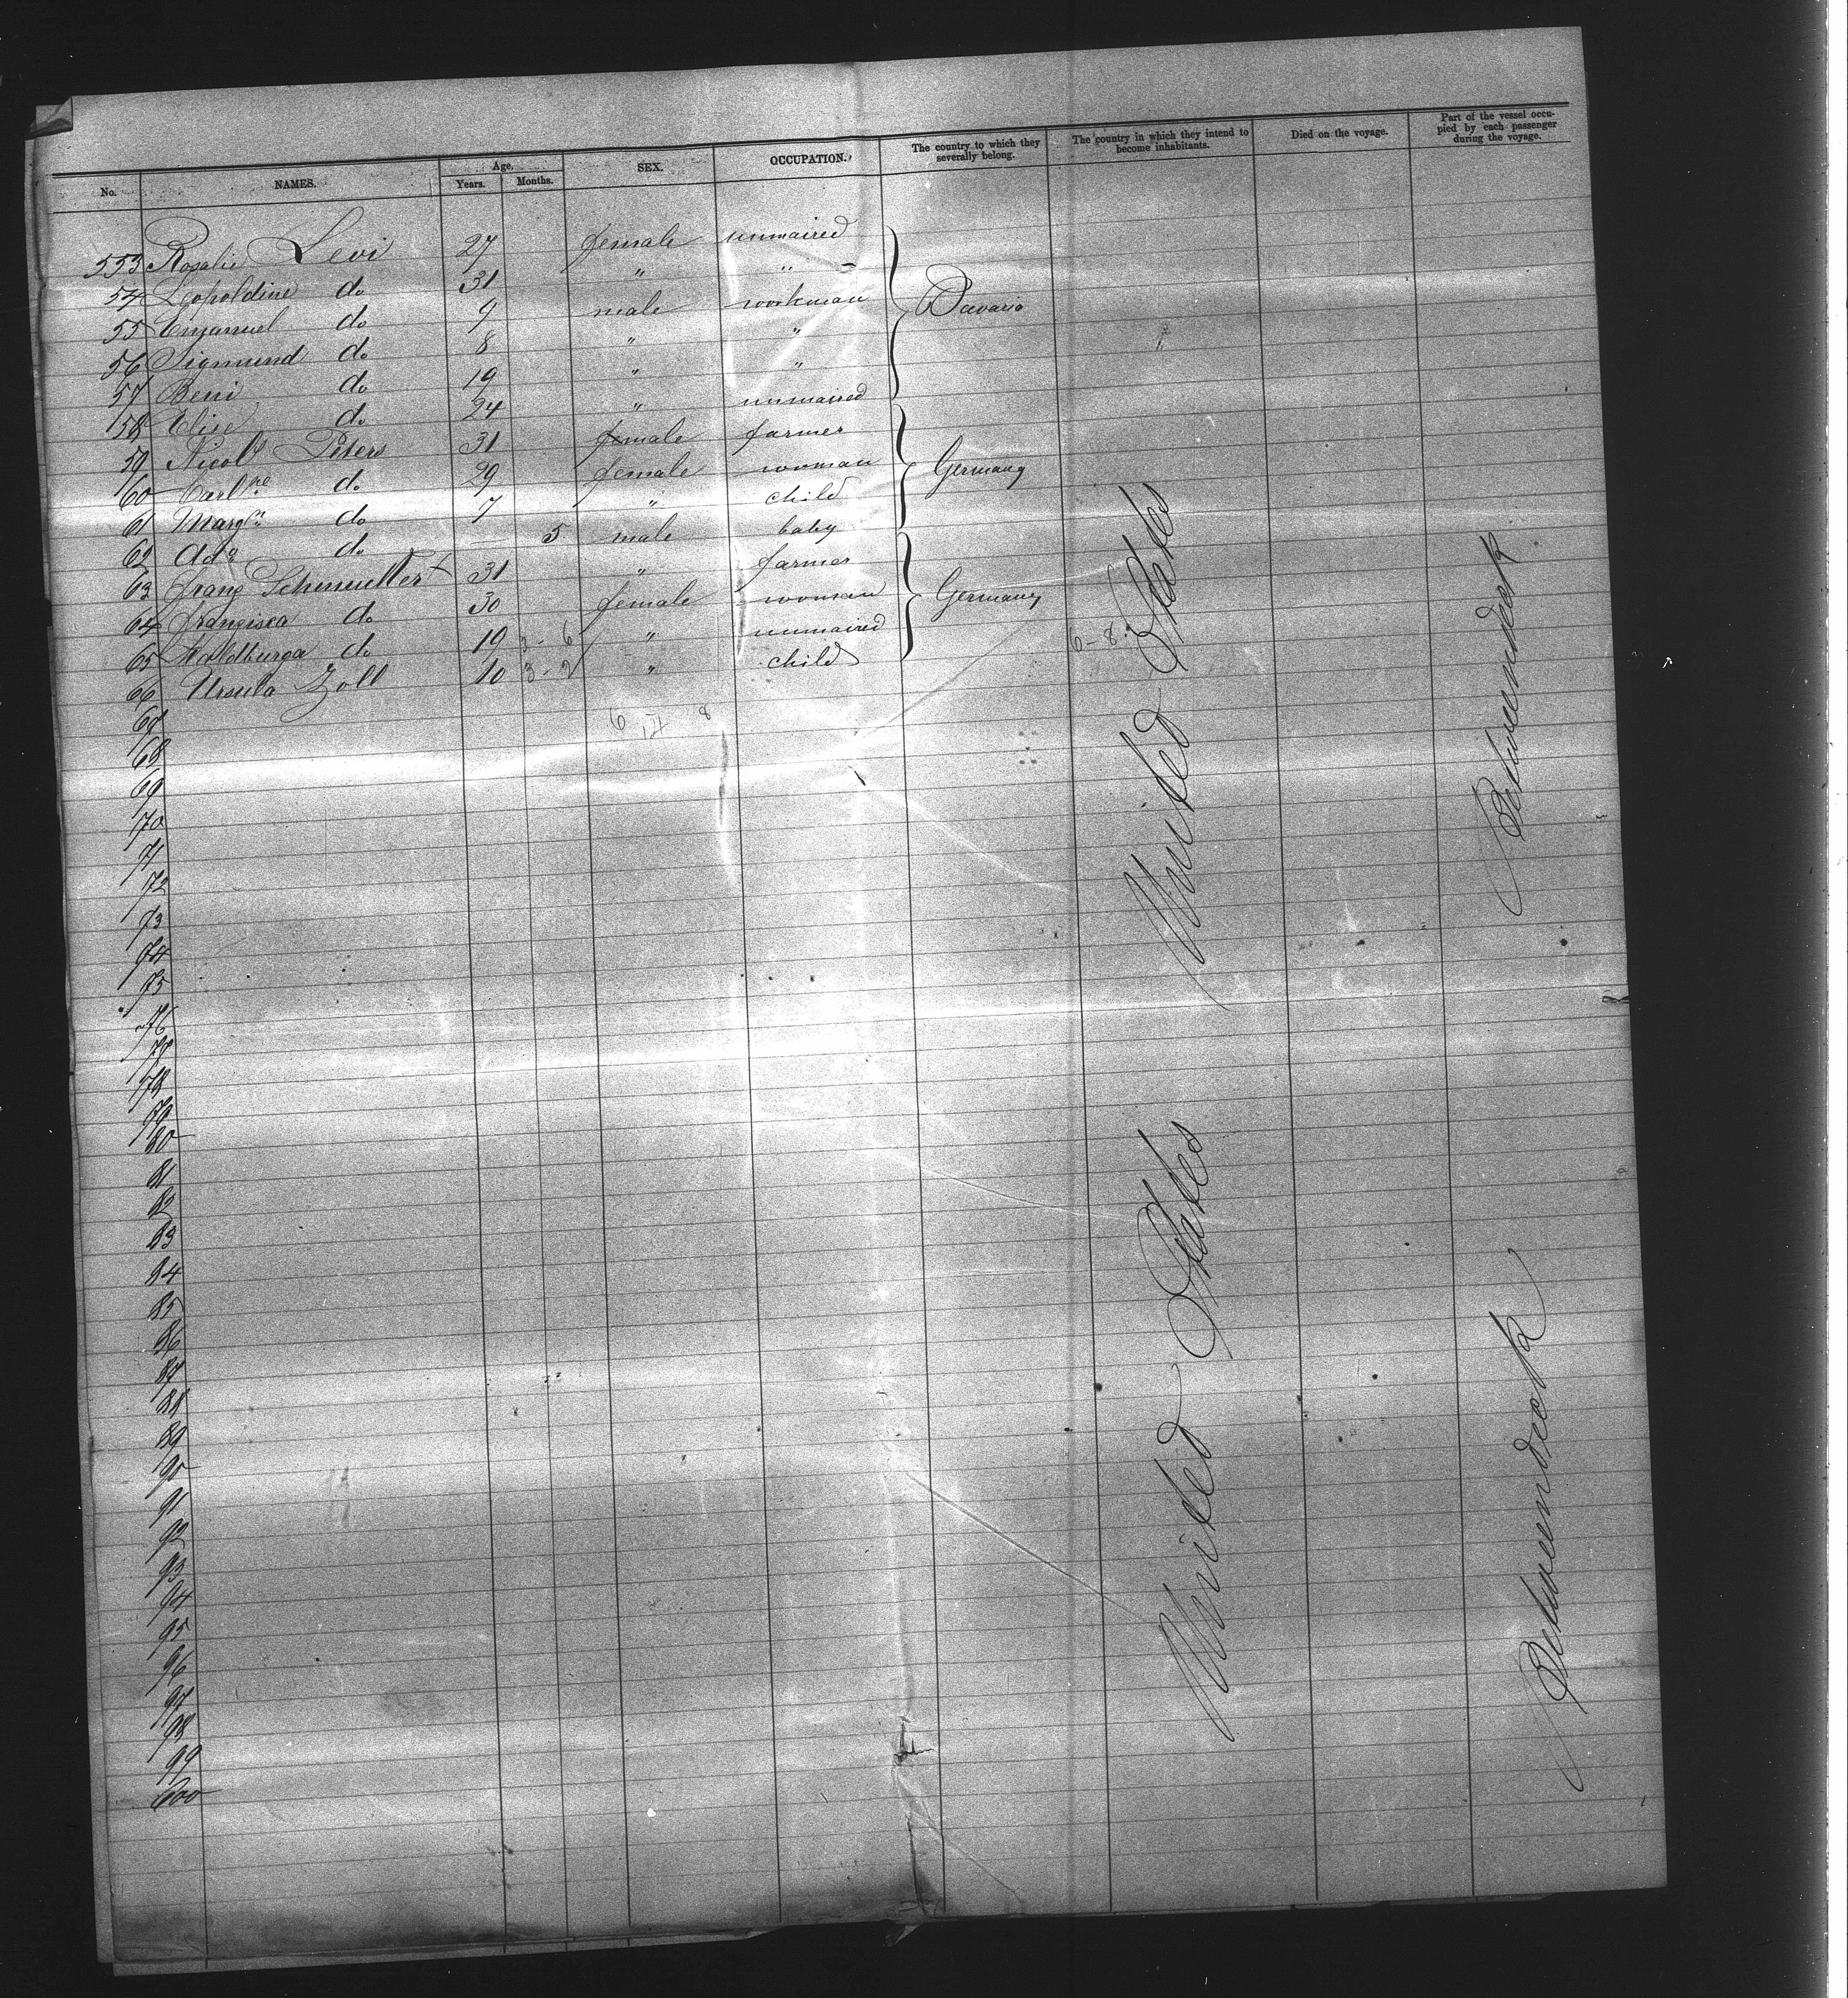 No. NAMES. Age. Years. Months. SEX. OCCUPATION. The country to which they severally belong. The country in which they intend to become inhabitants. Died on the voyage. Part of the vessel occupied by each passenger during the voyage.
553 Rosalie Levi 27 female unmaired
54 Leopoldine do 31 " "
55 Emanuel do 9 male workman Bavaria
56 Sigmund do 8 " "
57 Beni do 19 " "
58 Elise do 24 " unmaired
59 Nicols Peters 31 male farmer
60 Carlne do 29 female woman Germany
61 Marg. do 7 " child
62 Ada do — 5 male baby
63 Franz Schmutter 31 " farmer
64 Franzisca do 30 female woman Germany
65 Waldburga do 19 3-6 " unmaired 6-8
66 Ursula Zoll 10 3-2 " child
67 6 14 8
68
69
70
71
72
73
74
75
76
77
78
79
80
81
82
83
84
85
86
87
88
89
90
91
92
93
94
95
96
97
98
99
600
United States
Betweendeck
United States
Betweendeck